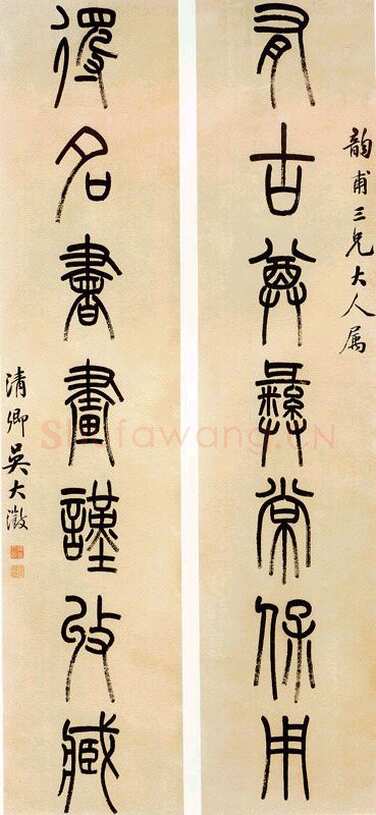 韵甫三兄大人属
有古尊彝常保用
得名書畫謹收臧
清卿吳大澂
Shufawang.CN